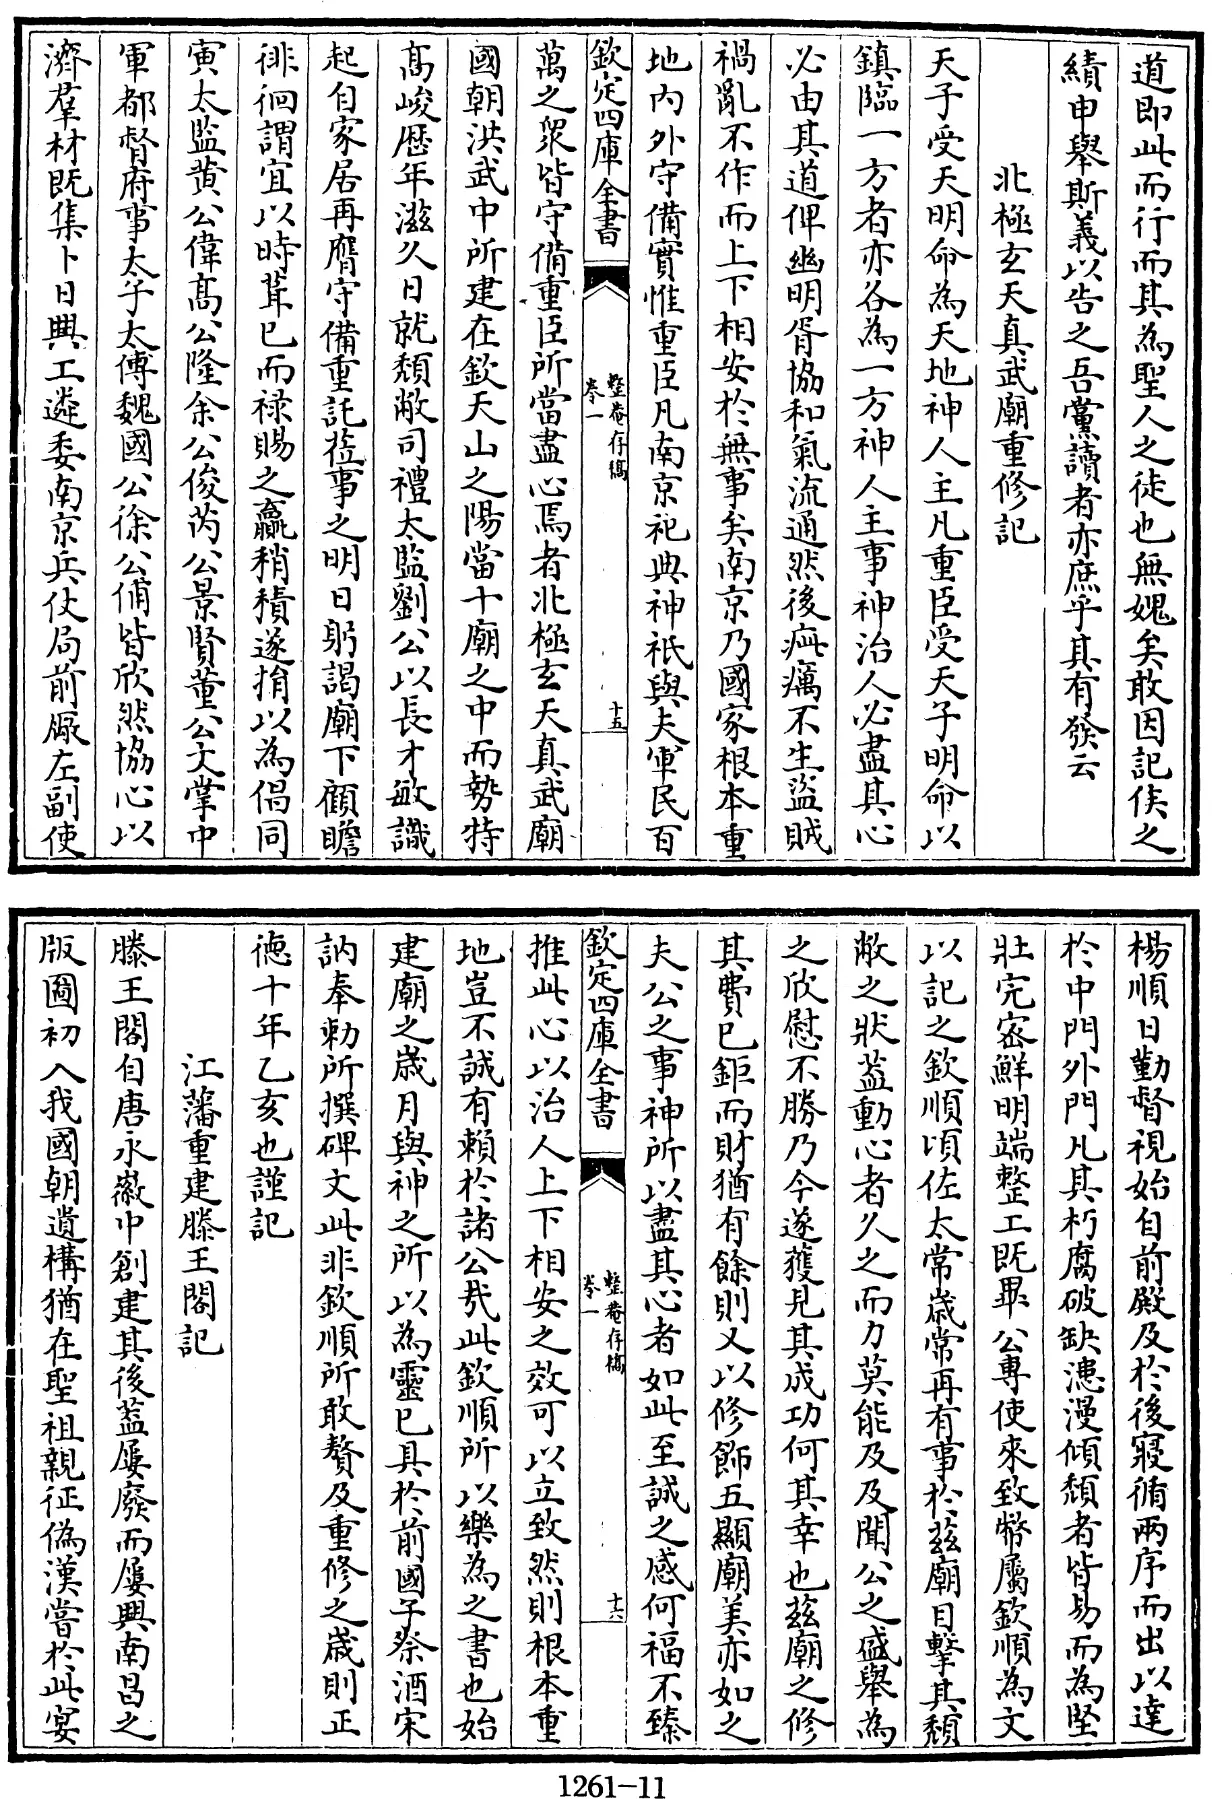 道即此而行而其為聖人之徒也無媿矣敢因記侯之
績申舉斯義以告之吾黨讀者亦庶乎其有發云
北極玄天真武廟重修記
天子受天明命為天地神人主凡重臣受天子明命以
鎮臨一方者亦各為一方神人主事神治人必盡其心
必由其道俾幽明胥協和氣流通然後疵癘不生盜賊
禍亂不作而上下相安於無事矣南京乃國家根本重
地内外守備實惟重臣凡南京祀典神祇與夫軍民百
欽定四庫全書
整菴存稿
卷一
十五
萬之衆皆守備重臣所當盡心焉者北極玄天真武廟
國朝洪武中所建在欽天山之陽當十廟之中而勢特
高峻歷年滋久日就頽敝司禮太監劉公以長才敏識
起自家居再膺守備重託莅事之明日躬謁廟下顧瞻
徘徊謂宜以時葺已而祿賜之贏稍積遂捐以為倡同
寅太監黄公偉高公隆余公俊芮公景賢董公文掌中
軍都督府事太子太傅魏國公徐公俌皆欣然協心以
濟羣材既集卜日興工遴委南京兵仗局前廠左副使
楊順日勤督視始自前殿及於後寢循兩序而出以達
於中門外門凡其朽腐破缺漶漫傾頽者皆易而為堅
壯完宻鮮明端整工既畢公專使來致幣屬欽順為文
以記之欽順頃佐太常歲常再有事於兹廟目擊其頽
敝之狀葢動心者久之而力莫能及及聞公之盛舉為
之欣慰不勝乃今遂獲見其成功何其幸也兹廟之修
其費已鉅而財猶有餘則又以修飾五顯廟美亦如之
夫公之事神所以盡其心者如此至誠之感何福不臻
欽定四庫全書
整菴存稿
卷一
十六
推此心以治人上下相安之效可以立致然則根本重
地豈不誠有賴於諸公哉此欽順所以樂為之書也始
建廟之歲月與神之所以為靈已具於前國子祭酒宋
訥奉勅所撰碑文此非欽順所敢贅及重修之歲則正
德十年乙亥也謹記
江藩重建滕王閣記
滕王閣自唐永徽中創建其後葢屢廢而屢興南昌之
版圖初入我國朝遺構猶在聖祖親征偽漢嘗於此宴
1261-11